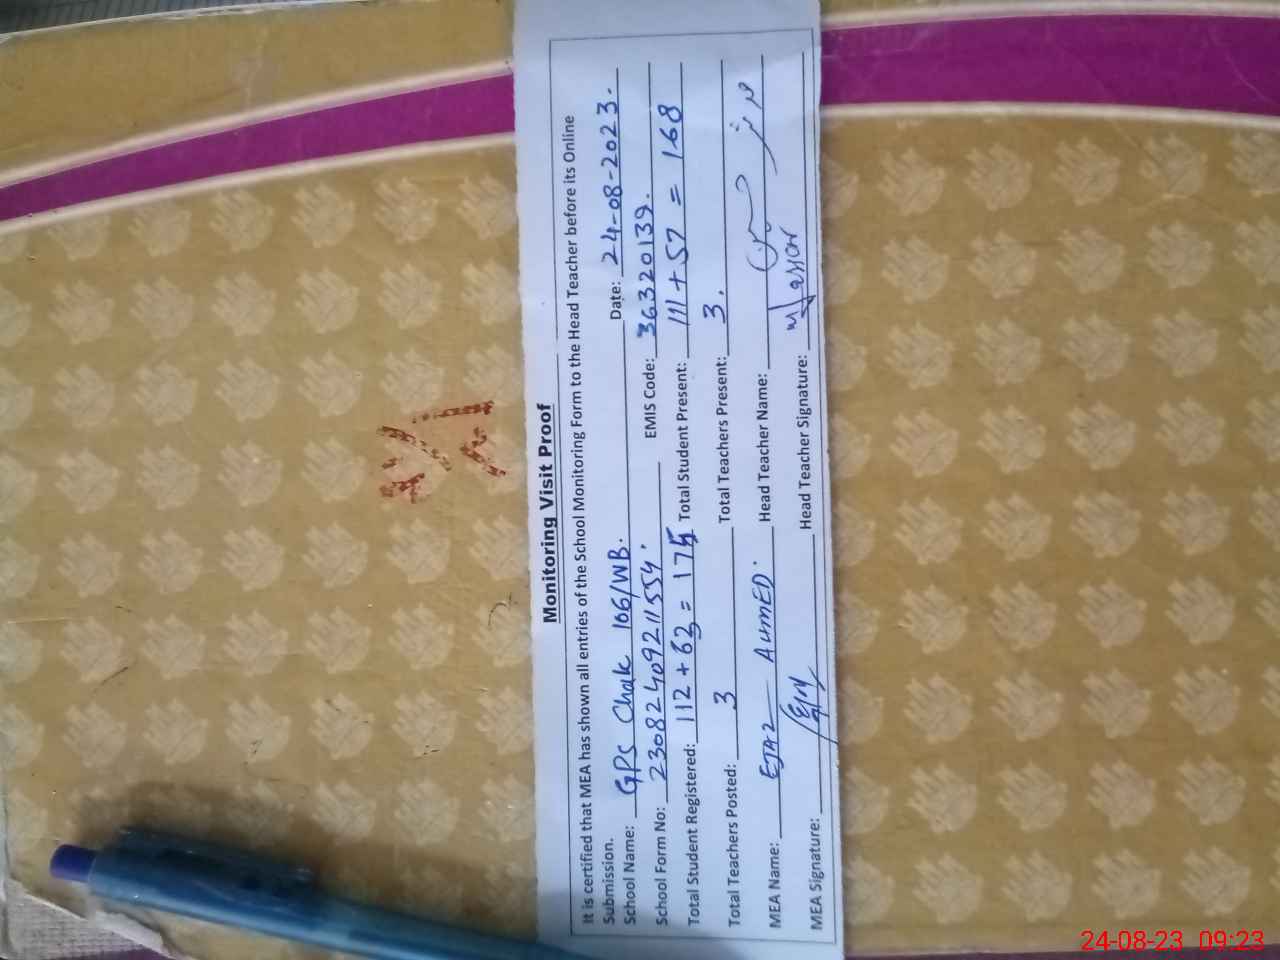 Monitoring Visit Proof
It is certified that MEA has shown all entries of the School Monitoring Form to the Head Teacher before its Online
Submission.
School Name: GPS Chak 106/WB. Date: 24-08-2023.
School Form No: 23082409211554. EMIS Code: 36320139.
Total Student Registered: 112 + 63 = 175 Total Student Present: 111 + 57 = 168
Total Teachers Posted: 3 Total Teachers Present: 3.
MEA Name: EJAZ AHMED. Head Teacher Name:
MEA Signature: Head Teacher Signature:
24-08-23 09:23